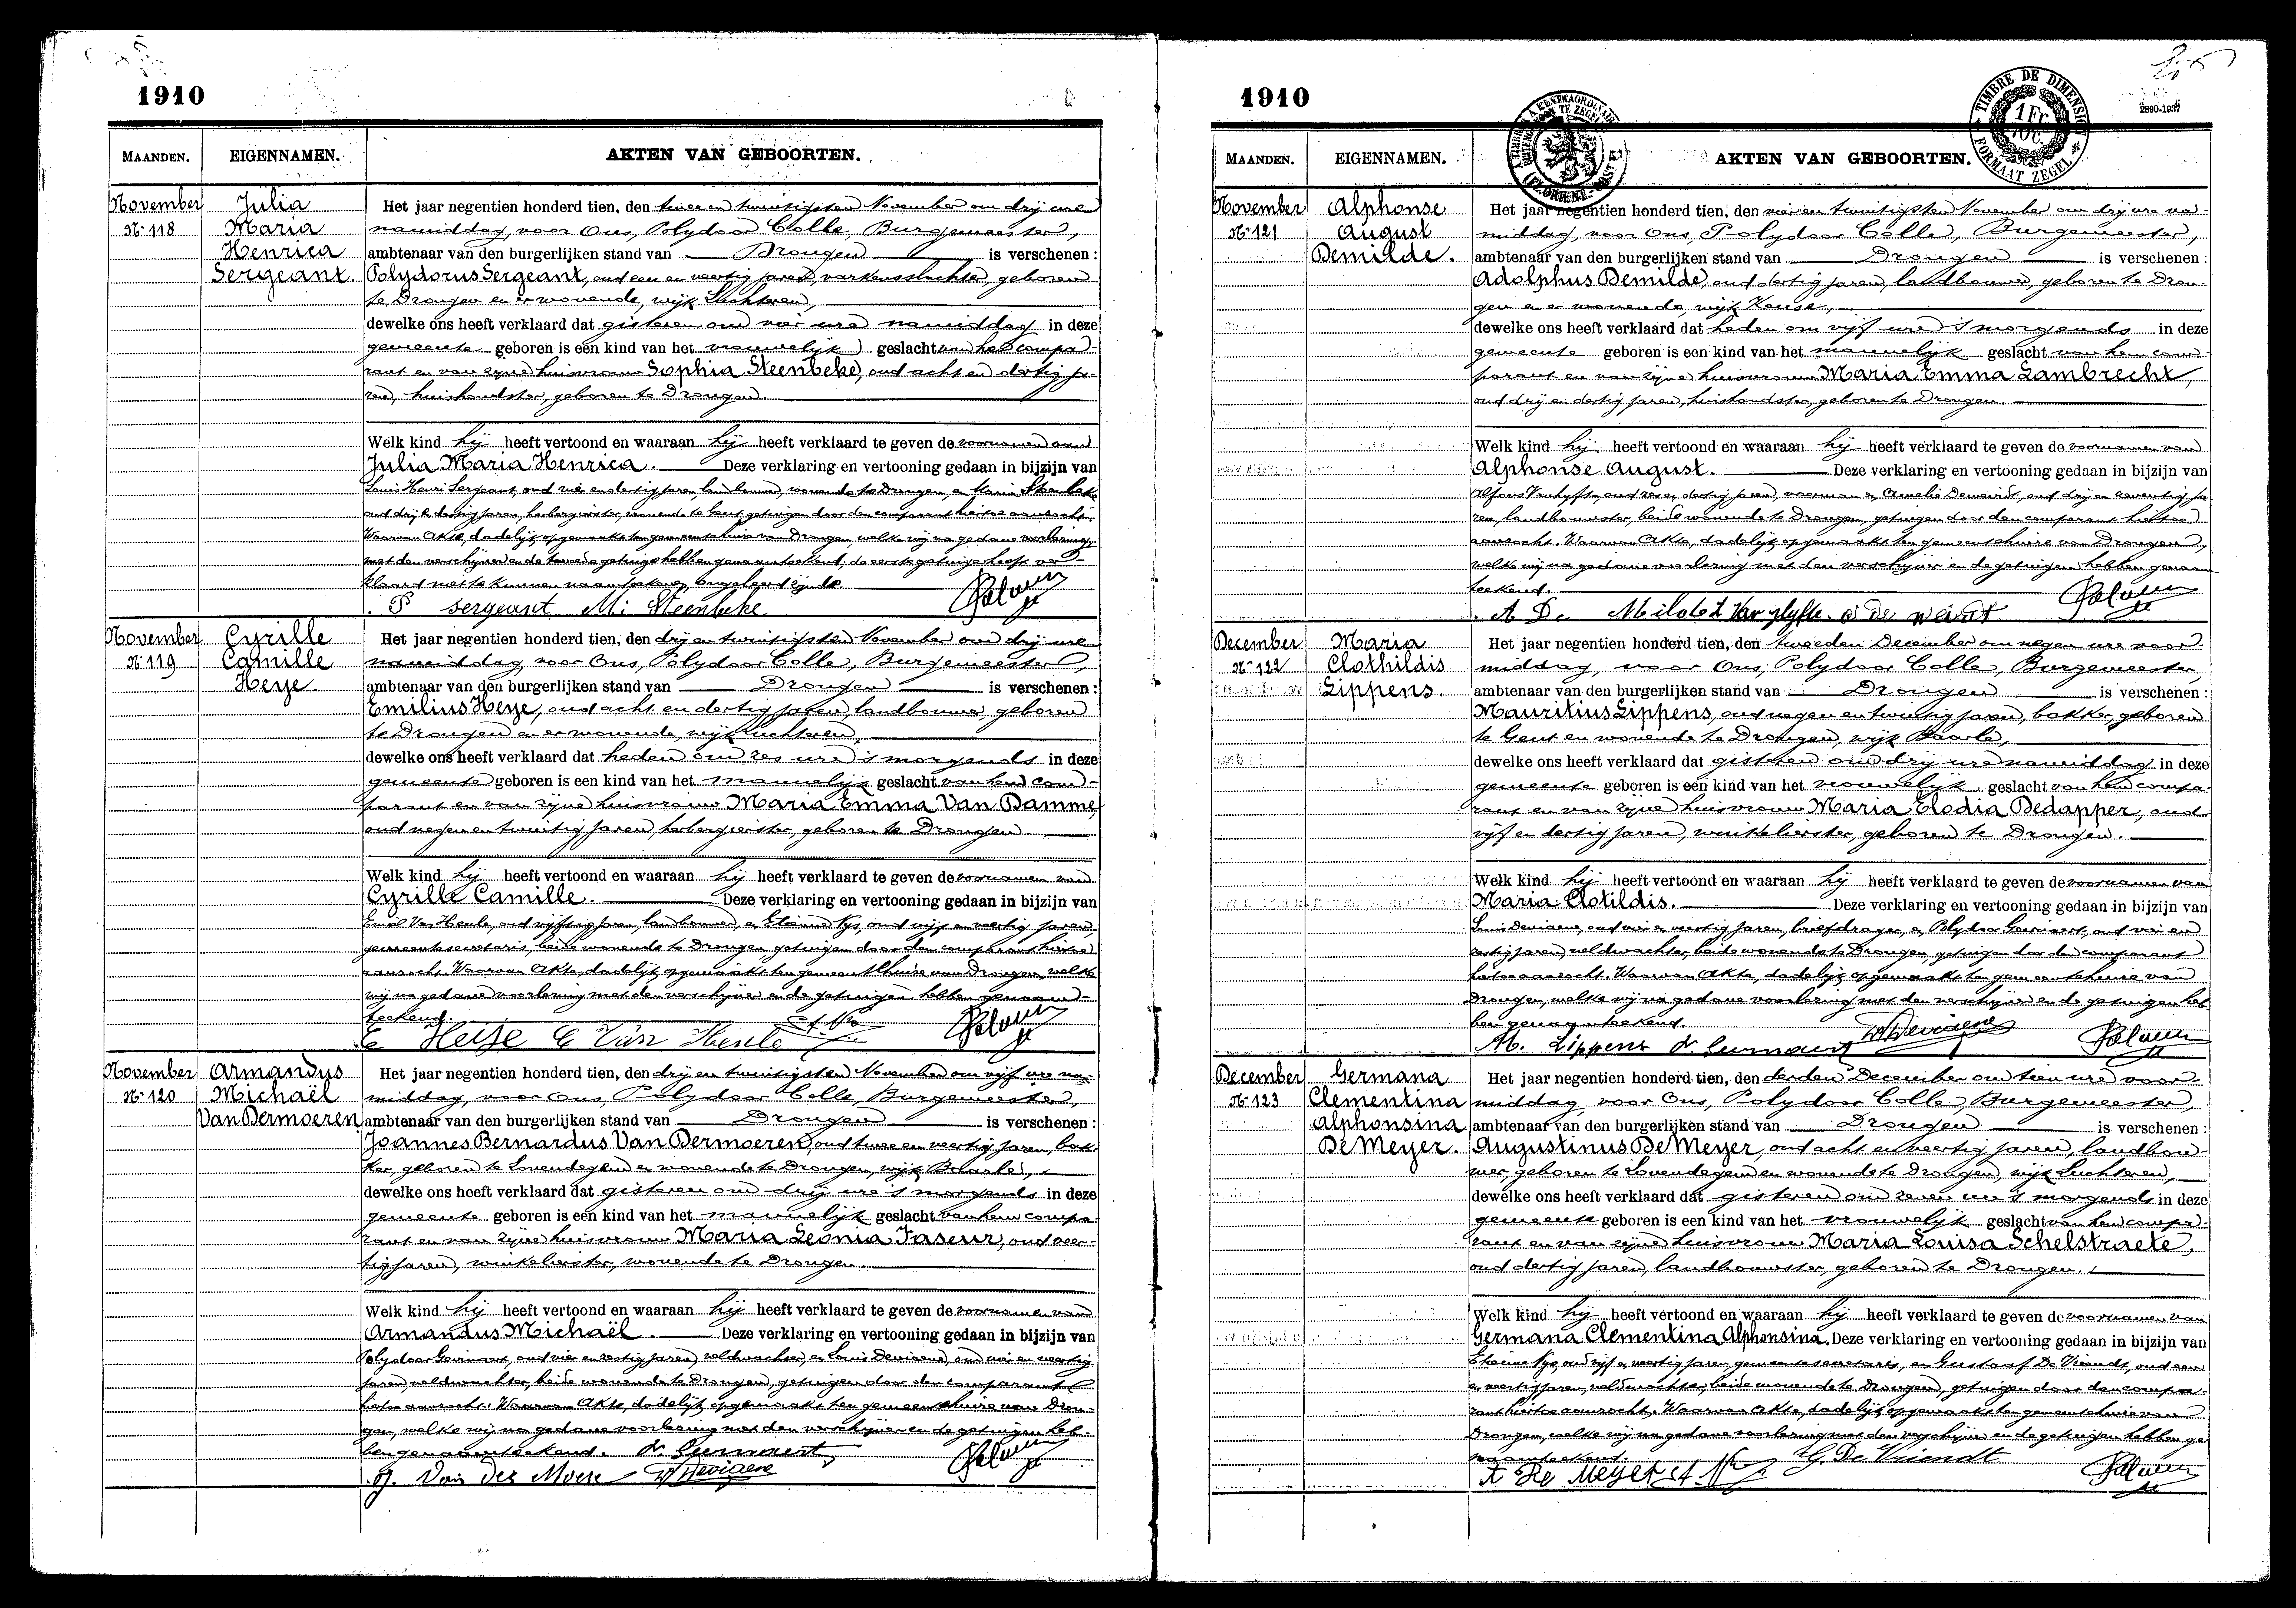 1910
MAANDEN. EIGENNAMEN. AKTEN VAN GEBOORTEN.
November
N° 118
Julia
Maria
Henrica
Sergeant.
Het jaar negentien honderd tien, den twee en twintigsten November om drij ure
namiddag, voor Ons, Polydoor Colle, Burgemeester,
ambtenaar van den burgerlijken stand van Drongen is verschenen:
Polydorus Sergeant, oud een en veertig jaren, varkensslachter, geboren
te Drongen en er wonende, wijk Luchteren,
dewelke ons heeft verklaard dat gisteren om vier ure namiddag in deze
gemeente geboren is een kind van het vrouwelijk geslacht van hem compa-
rant en van zijne huisvrouw Sophia Steenbeke, oud acht en dertig ja-
ren, huishoudster, geboren te Drongen.
Welk kind hij heeft vertoond en waaraan hij heeft verklaard te geven de voornamen van
Julia Maria Henrica. Deze verklaring en vertooning gedaan in bijzijn van
Louis Henri Sergeant, oud vier en dertig jaren, landbouwer, wonende te Drongen, en Maria Steenbeke
oud drij en dertig jaren, herbergierster, wonende te Gent, getuigen door den comparant hiertoe aanzocht.
Waarvan Akte, dadelijk opgemaakt ten gemeentehuize van Drongen, welke wij na gedane voorlezing,
met den verschijner en de tweede getuige hebben genaamteekend, de eerste getuige heeft ver-
klaard niet te kunnen naamteekenen, ongeleerd zijnde.
P Sergeant M: Steenbeke
November
N° 119
Cyrille
Camille
Heye.
Het jaar negentien honderd tien, den drij en twintigsten November om drij ure
namiddag, voor Ons, Polydoor Colle, Burgemeester,
ambtenaar van den burgerlijken stand van Drongen is verschenen:
Emilius Heye, oud acht en dertig jaren, landbouwer, geboren
te Drongen en er wonende, wijk Luchteren,
dewelke ons heeft verklaard dat heden om zes ure 's morgends in deze
gemeente geboren is een kind van het mannelijk geslacht van hem com-
parant en van zijne huisvrouw Maria Emma Van Damme,
oud negen en twintig jaren, herbergierster, geboren te Drongen.
Welk kind hij heeft vertoond en waaraan hij heeft verklaard te geven de voornamen van
Cyrille Camille. Deze verklaring en vertooning gedaan in bijzijn van
Emiel Van Heule, oud vijftig jaren, landbouwer, en Etienne Nys, oud vijf en veertig jaren
gemeentesecretaris, beide wonende te Drongen, getuigen door den comparant hiertoe
aanzocht. Waarvan Akte, dadelijk opgemaakt ten gemeentehuize van Drongen, welke
wij na gedane voorlezing met den verschijner en de getuigen hebben genaam-
teekend.
E Heye E Van Heule
November
N° 120
Armandus
Michaël
Van Dermoeren
Het jaar negentien honderd tien, den drij en twintigsten November om vijf ure na-
middag, voor Ons, Polydoor Colle, Burgemeester,
ambtenaar van den burgerlijken stand van Drongen is verschenen:
Joannes Bernardus Van Dermoeren, oud twee en veertig jaren, bak-
ker, geboren te Lovendegem en wonende te Drongen, wijk Baarle,
dewelke ons heeft verklaard dat gisteren om drij ure 's morgends in deze
gemeente geboren is een kind van het mannelijk geslacht van hem compa-
rant en van zijne huisvrouw Maria Leonia Faseur, oud veer-
tig jaren, winkelierster, wonende te Drongen.
Welk kind hij heeft vertoond en waaraan hij heeft verklaard te geven de voornamen van
Armandus Michaël. Deze verklaring en vertooning gedaan in bijzijn van
Polydoor Geirnaert, oud vier en zestig jaren, veldwachter, en Louis Devigene, oud vier en veertig
jaren, veldwachter, beide wonende te Drongen, getuigen door den comparant
hiertoe aanzocht. Waarvan Akte, dadelijk opgemaakt ten gemeentehuize van Dron-
gen, welke wij na gedane voorlezing met den verschijner en de getuigen heb-
ben genaamteekend.
1910
2890-1937
TIMBRE DE DIMENSION
1 Fr.
FORMAAT ZEGEL
MAANDEN. EIGENNAMEN. AKTEN VAN GEBOORTEN.
November
N° 121
Alphonse
August
Demilde.
Het jaar negentien honderd tien, den vier en twintigsten November om drij ure na-
middag, voor Ons, Polydoor Colle, Burgemeester,
ambtenaar van den burgerlijken stand van Drongen is verschenen:
Adolphus Demilde, oud dertig jaren, landbouwer, geboren te Dron-
gen en er wonende, wijk Keuze,
dewelke ons heeft verklaard dat heden om vijf ure 's morgends in deze
gemeente geboren is een kind van het mannelijk geslacht van hem com-
parant en van zijne huisvrouw Maria Emma Lambrecht,
oud drij en dertig jaren, huishoudster, geboren te Drongen.
Welk kind hij heeft vertoond en waaraan hij heeft verklaard te geven de voornamen van
Alphonse August. Deze verklaring en vertooning gedaan in bijzijn van
Alfons Vanhyfte, oud zes en dertig jaren, voerman en Amelie Deweirdt, oud drij en zeventig ja-
ren, landbouwster, beide wonende te Drongen, getuigen door den comparant hiertoe
aanzocht. Waarvan Akte, dadelijk opgemaakt ten gemeentehuize van Drongen,
welke wij na gedane voorlezing met den verschijner en de getuigen hebben genaam-
teekend.
December
N° 122
Maria
Clothildis
Lippens.
Het jaar negentien honderd tien, den tweeden December om negen ure voor-
middag, voor Ons, Polydoor Colle, Burgemeester,
ambtenaar van den burgerlijken stand van Drongen is verschenen:
Mauritius Lippens, oud negen en twintig jaren, bakker, geboren
te Gent en wonende te Drongen, wijk Baarle,
dewelke ons heeft verklaard dat gisteren om drij ure namiddag in deze
gemeente geboren is een kind van het vrouwelijk geslacht van hem compa-
rant en van zijne huisvrouw Maria Elodia Dedapper, oud
vijf en dertig jaren, winkelierster, geboren te Drongen.
Welk kind hij heeft vertoond en waaraan hij heeft verklaard te geven de voornamen van
Maria Clotildis. Deze verklaring en vertooning gedaan in bijzijn van
Louis Devigene, oud vier en veertig jaren, briefdrager, en Polydoor Geirnaert, oud vier en
zestig jaren, veldwachter, beide wonende te Drongen, getuigen door den comparant
hiertoe aanzocht. Waarvan Akte, dadelijk opgemaakt ten gemeentehuize van
Drongen, welke wij na gedane voorlezing met den verschijner en de getuigen heb-
ben genaamteekend.
M. Lippens
December
N° 123
Germana
Clementina
Alphonsina
De Meyer.
Het jaar negentien honderd tien, den derden December om tien ure voor-
middag, voor Ons, Polydoor Colle, Burgemeester,
ambtenaar van den burgerlijken stand van Drongen is verschenen:
Augustinus De Meyer, oud acht en veertig jaren, landbou-
wer, geboren te Lovendegem en wonende te Drongen, wijk Luchteren,
dewelke ons heeft verklaard dat gisteren om zeven ure 's morgends in deze
gemeente geboren is een kind van het vrouwelijk geslacht van hem compa-
rant en van zijne huisvrouw Maria Louisa Schelstraete,
oud dertig jaren, landbouwster, geboren te Drongen.
Welk kind hij heeft vertoond en waaraan hij heeft verklaard te geven de voornamen van
Germana Clementina Alphonsina. Deze verklaring en vertooning gedaan in bijzijn van
Etienne Nys, oud vijf en veertig jaren, gemeentesecretaris, en Gustaaf De Vriendt, oud een
en veertig jaren, veldwachter, beide wonende te Drongen, getuigen door den compa-
rant hiertoe aanzocht. Waarvan Akte, dadelijk opgemaakt ten gemeentehuize van
Drongen, welke wij na gedane voorlezing met den verschijner en de getuigen hebben ge-
naamteekend.
G. De Vriendt
A De Meyer